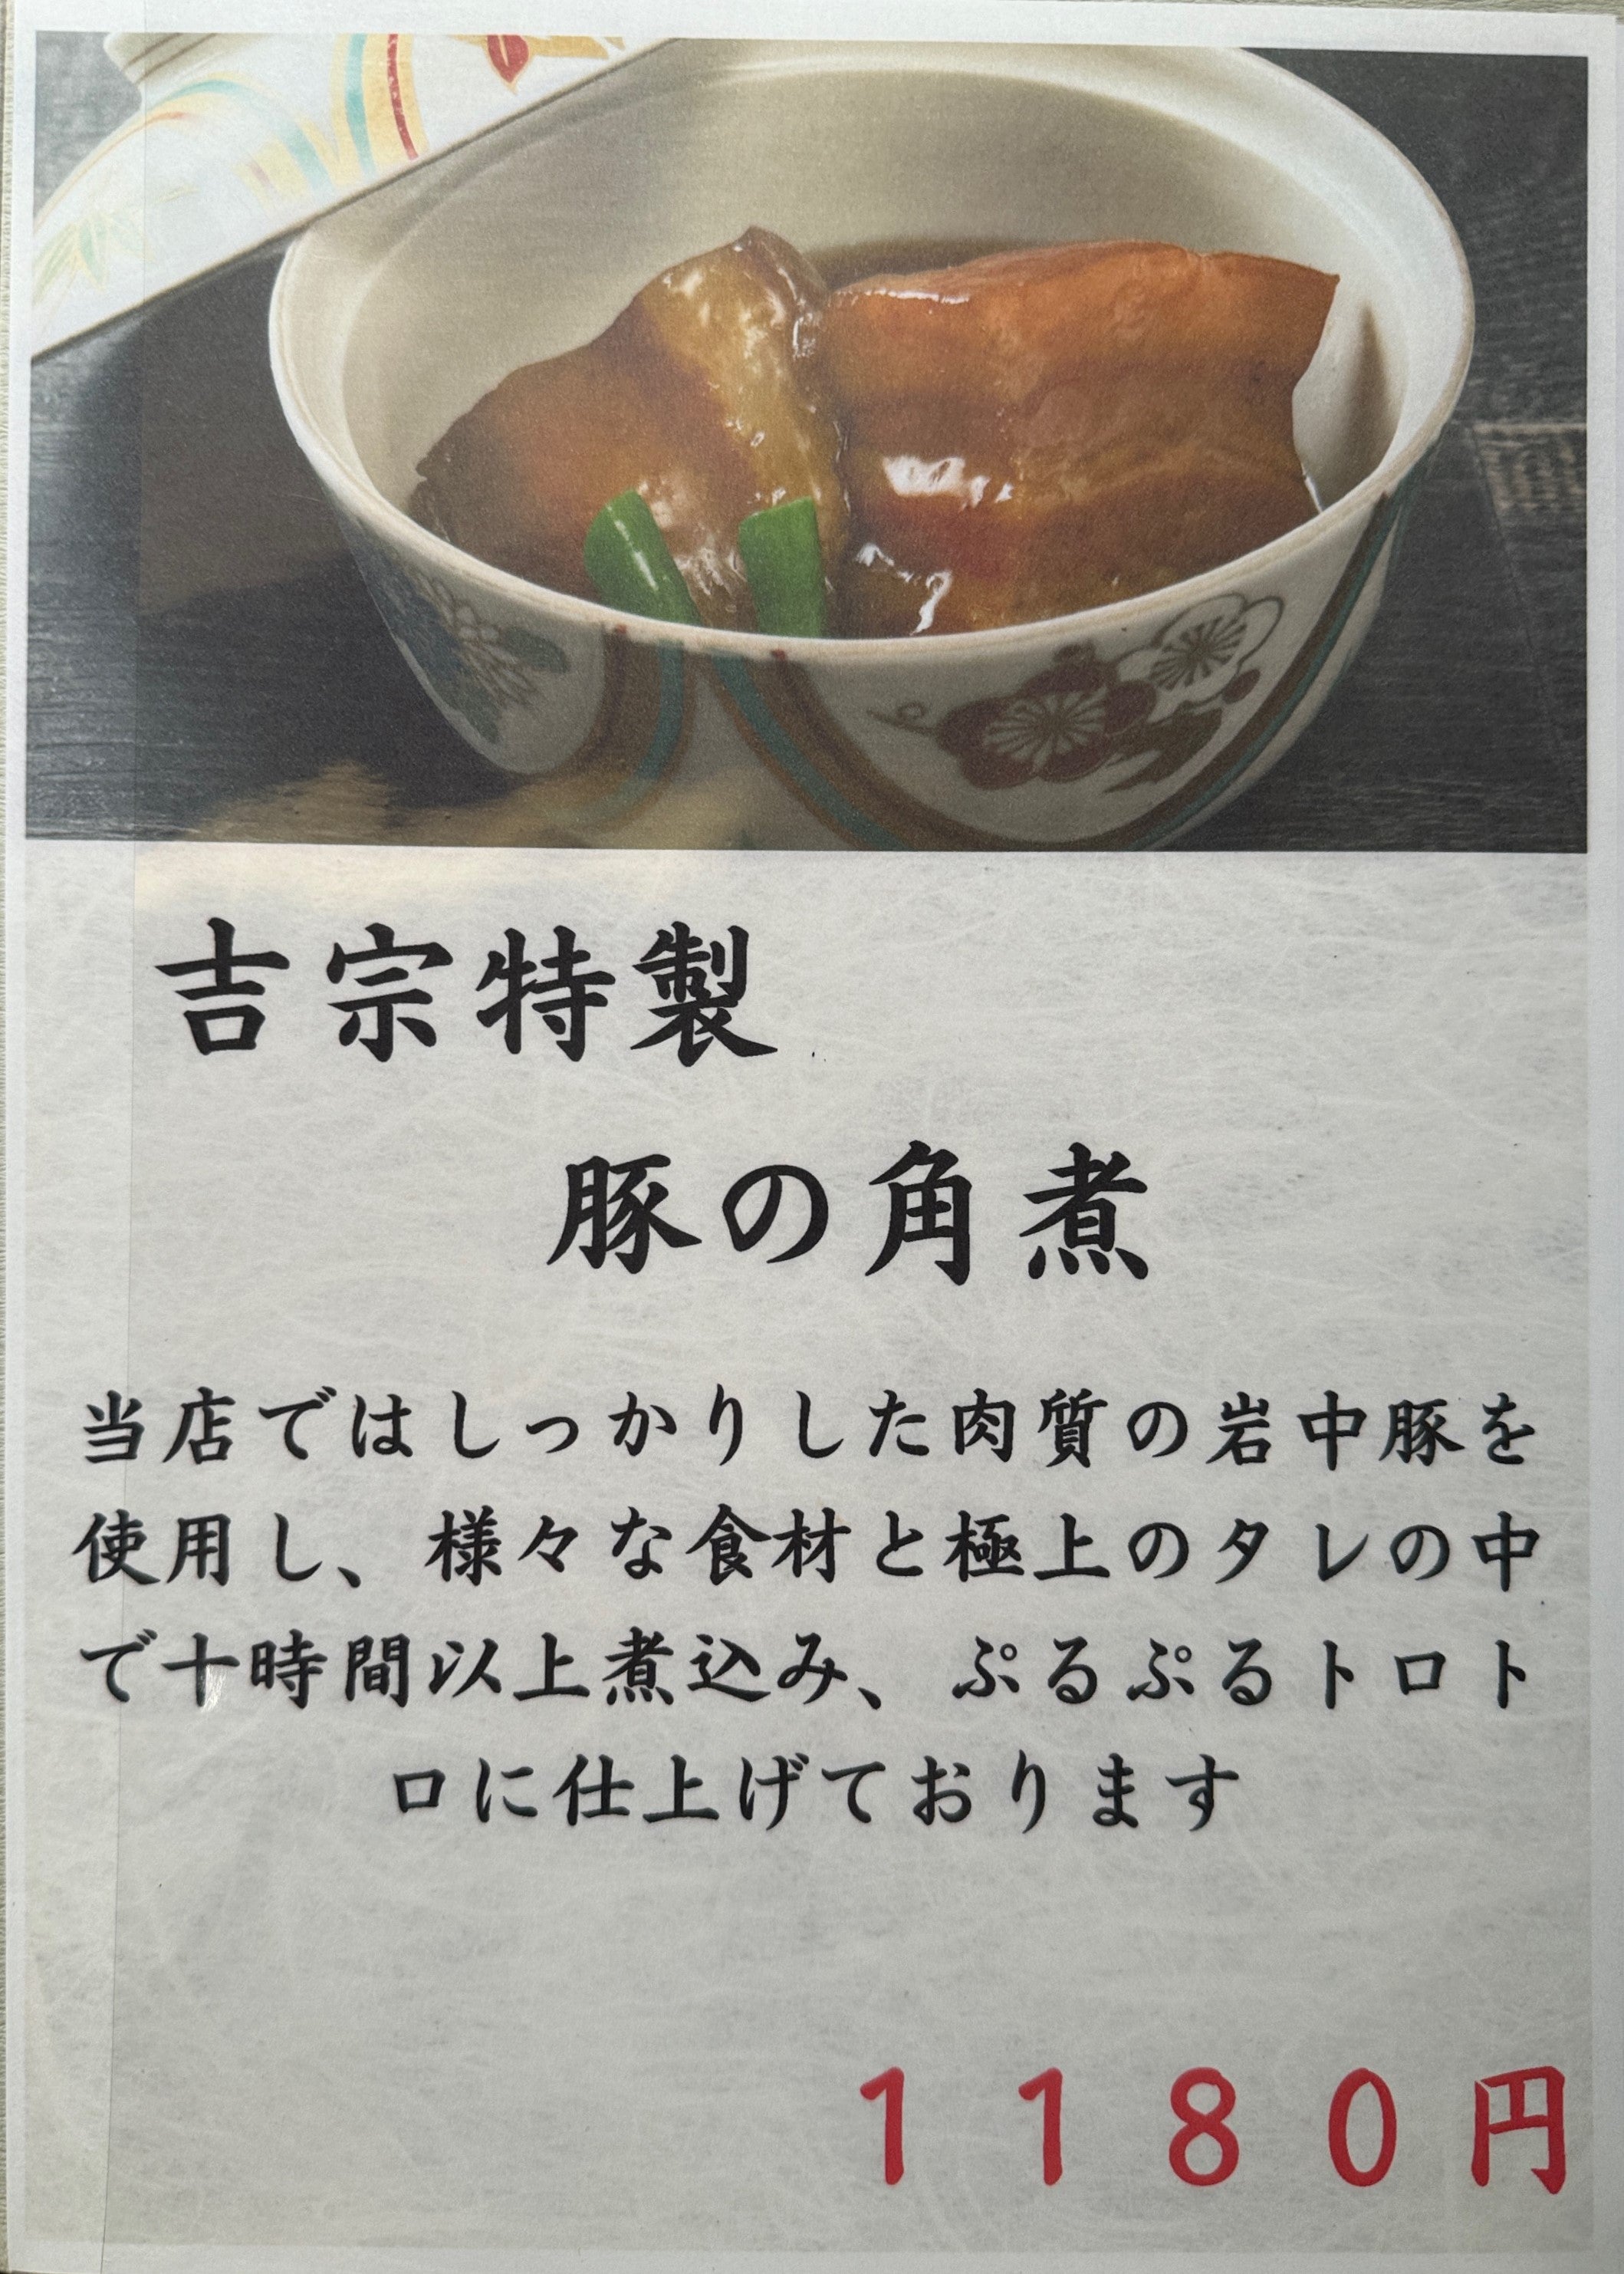 吉宗特製
豚の角煮
当店ではしっかりした肉質の岩中豚を
使用し、様々な食材と極上のタレの中
で十時間以上煮込み、ぷるぷるトロト
ロに仕上げております
１１８０円